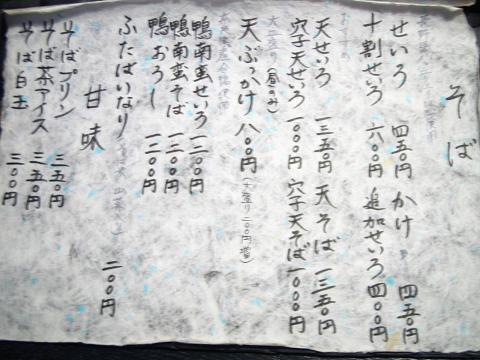 そば
せいろ 四五〇円 かけ 四五〇円
十割せいろ 六〇〇円 追加せいろ 四〇〇円
おすすめ
天せいろ 一三五〇円 天そば 一三五〇円
穴子天せいろ 一〇〇〇円 穴子天そば 一〇〇〇円
(昼のみ)
天ぶっかけ 八〇〇円 (大盛り二〇〇円増)
鴨南蛮せいろ 一二〇〇円
鴨南蛮そば 一二〇〇円
鴨おろし 一二〇〇円
ふたばいなり 二〇〇円
甘味
そばプリン 三五〇円
そば茶アイス 三五〇円
そば白玉 三〇〇円